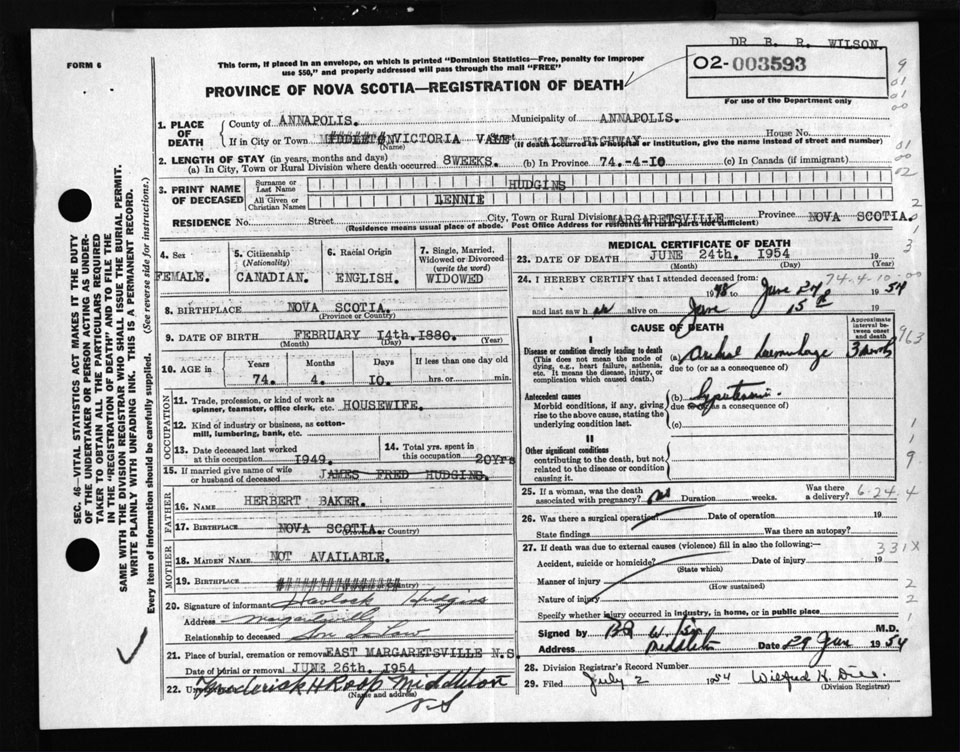 DR R. R. WILSON.
FORM 6
This form, if placed in an envelope, on which is printed "Dominion Statistics—Free, penalty for improper use $50," and properly addressed will pass through the mail "FREE"
O2-003593
For use of the Department only
PROVINCE OF NOVA SCOTIA—REGISTRATION OF DEATH
1. PLACE OF DEATH
County of ANNAPOLIS. Municipality of ANNAPOLIS.
If in City or Town VICTORIA VALE MAIN HIGHWAY House No.
(Name) (If death occurred in a hospital or institution, give the name instead of street and number)
2. LENGTH OF STAY (in years, months and days)
(a) In City, Town or Rural Division where death occurred 8WEEKS. (b) In Province 74.-4-10 (c) In Canada (if immigrant)
3. PRINT NAME OF DECEASED
Surname or Last Name HUDGINS
All Given or Christian Names LENNIE
RESIDENCE No. Street City, Town or Rural Division MARGARETSVILLE Province NOVA SCOTIA.
(Residence means usual place of abode. Post Office Address for residents in rural parts not sufficient)
4. Sex
FEMALE.
5. Citizenship (Nationality)
CANADIAN.
6. Racial Origin
ENGLISH.
7. Single, Married, Widowed or Divorced (write the word)
WIDOWED
8. BIRTHPLACE NOVA SCOTIA.
(Province or Country)
9. DATE OF BIRTH FEBRUARY 14th.1880.
(Month) (Day) (Year)
10. AGE in
Years Months Days If less than one day old
74. 4. 10. hrs. or min.
OCCUPATION
11. Trade, profession, or kind of work as spinner, teamster, office clerk, etc. HOUSEWIFE.
12. Kind of industry or business, as cotton-mill, lumbering, bank, etc.
13. Date deceased last worked at this occupation 1949.
14. Total yrs. spent in this occupation 20Yrs
15. If married give name of wife or husband of deceased JAMES FRED HUDGINS.
FATHER
16. NAME HERBERT BAKER.
17. BIRTHPLACE NOVA SCOTIA.
(Province or Country)
MOTHER
18. MAIDEN NAME NOT AVAILABLE.
19. BIRTHPLACE
20. Signature of informant Havlock Hudgins
Address Margaretsville
Relationship to deceased Son In Law
21. Place of burial, cremation or removal EAST MARGARETSVILLE N.S.
Date of burial or removal JUNE 26th. 1954
22. Undertaker Frederick H Roop Middleton
N.S
(Name and address)
MEDICAL CERTIFICATE OF DEATH
23. DATE OF DEATH JUNE 24th. 1954
(Month) (Day) (Year)
24. I HEREBY CERTIFY that I attended deceased from:
74.4.10.00
1948 to June 24 1954
and last saw h er alive on June 15th 19
CAUSE OF DEATH
Approximate interval between onset and death
I
Disease or condition directly leading to death
(This does not mean the mode of dying, e.g., heart failure, asthenia, etc. It means the disease, injury, or complication which caused death.)
(a) Cerebral haemorrhage 3 months
due to (or as a consequence)
Antecedent causes
Morbid conditions, if any, giving rise to the above cause, stating the underlying condition last.
(b) Hypertension
due to (or as a consequence)
(c)
II
Other significant conditions
contributing to the death, but not related to the disease or condition causing it.
25. If a woman, was the death associated with pregnancy? no Duration weeks. Was there a delivery?
6-24.4
26. Was there a surgical operation? Date of operation 19
State findings Was there an autopsy?
27. If death was due to external causes (violence) fill in also the following:
331X
Accident, suicide or homicide? Date of injury 19
(State which)
Manner of injury
(How sustained)
Nature of injury
Specify whether injury occurred in industry, in home, or in public place
Signed by M.D.
Address Middleton Date 29 June 1954
28. Division Registrar's Record Number
29. Filed July 2 1954
(Division Registrar)
SEC. 46—VITAL STATISTICS ACT MAKES IT THE DUTY OF THE UNDERTAKER OR PERSON ACTING AS UNDERTAKER TO OBTAIN ALL THE PARTICULARS REQUIRED IN THE "REGISTRATION OF DEATH" AND TO FILE THE SAME WITH THE DIVISION REGISTRAR WHO SHALL ISSUE THE BURIAL PERMIT.
WRITE PLAINLY WITH UNFADING INK. THIS IS A PERMANENT RECORD.
Every item of information should be carefully supplied. (See reverse side for instructions.)